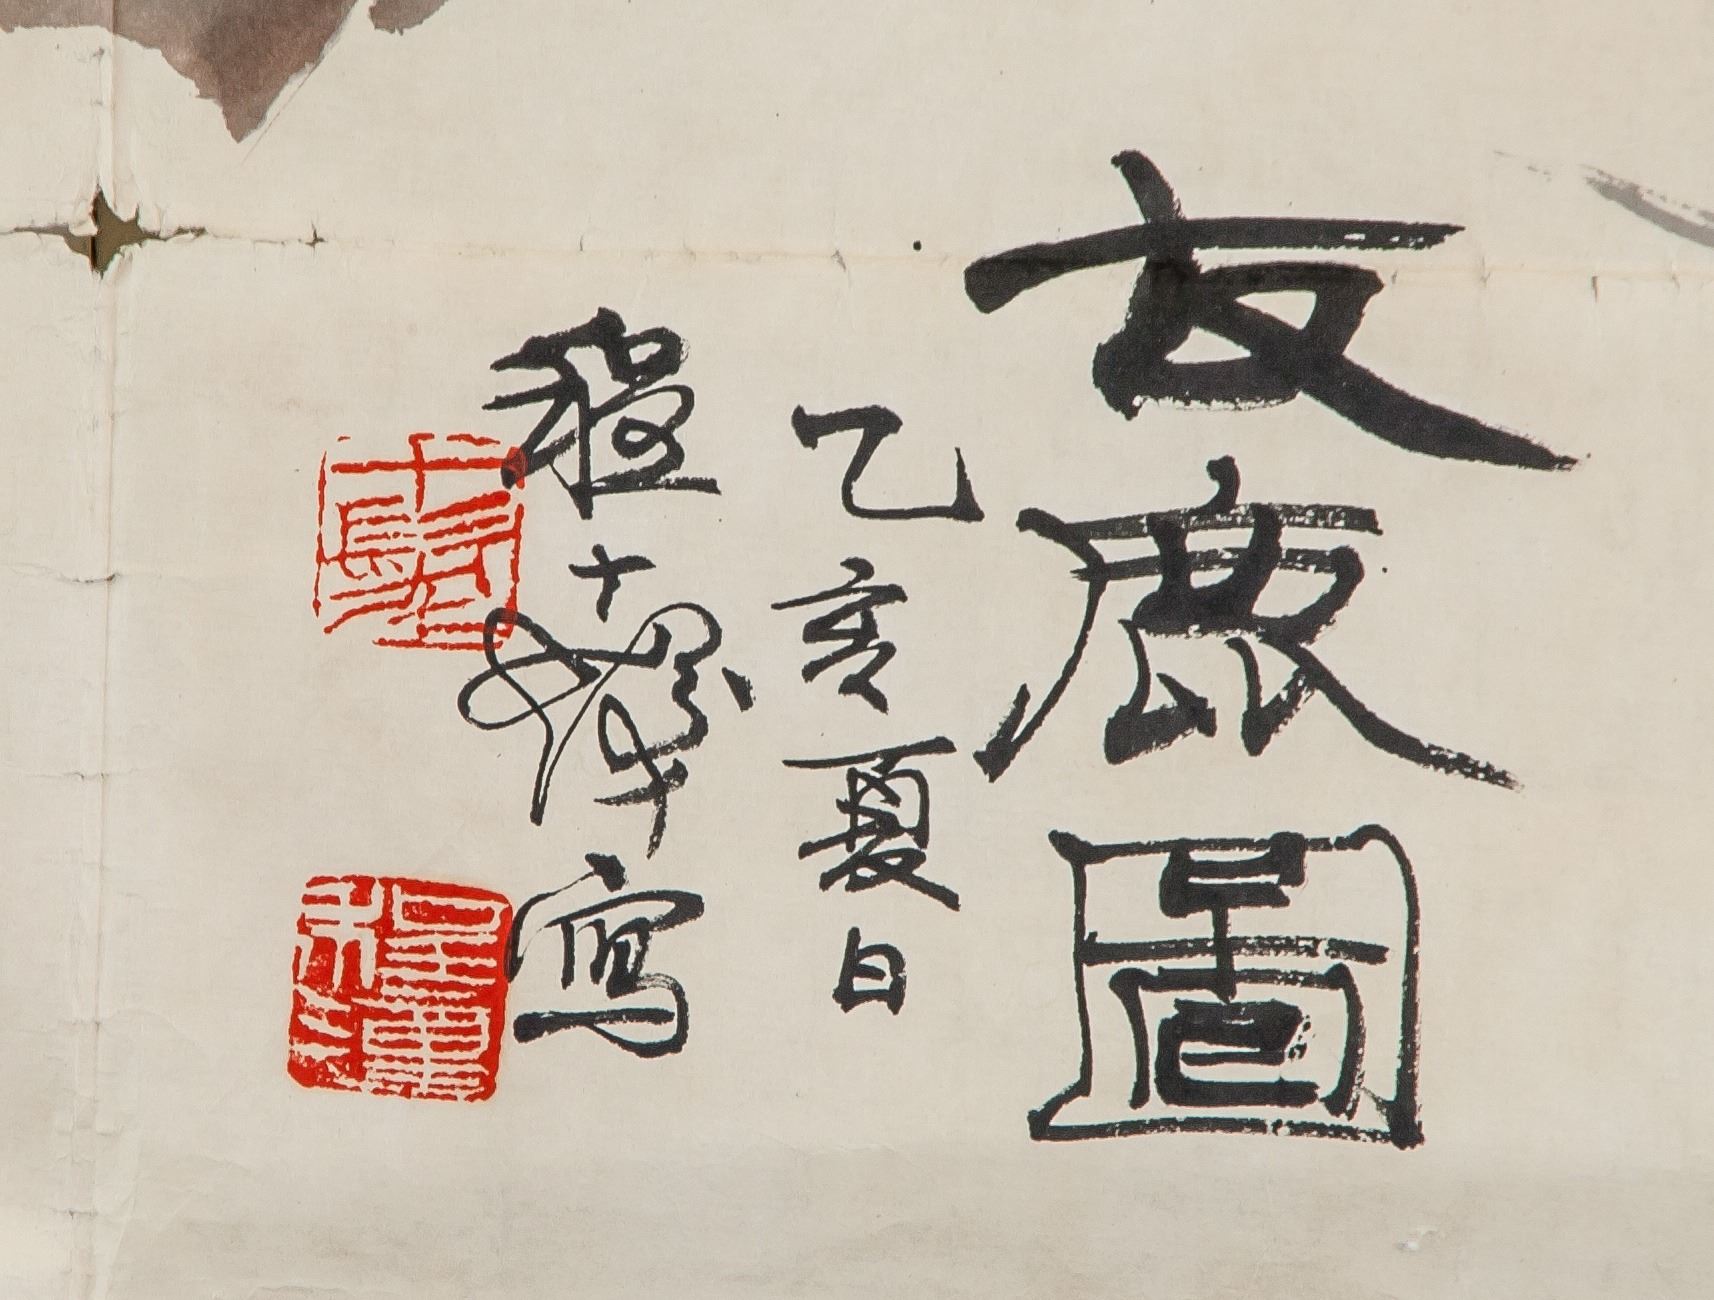 友鹿圖
乙亥夏日
程十髮寫